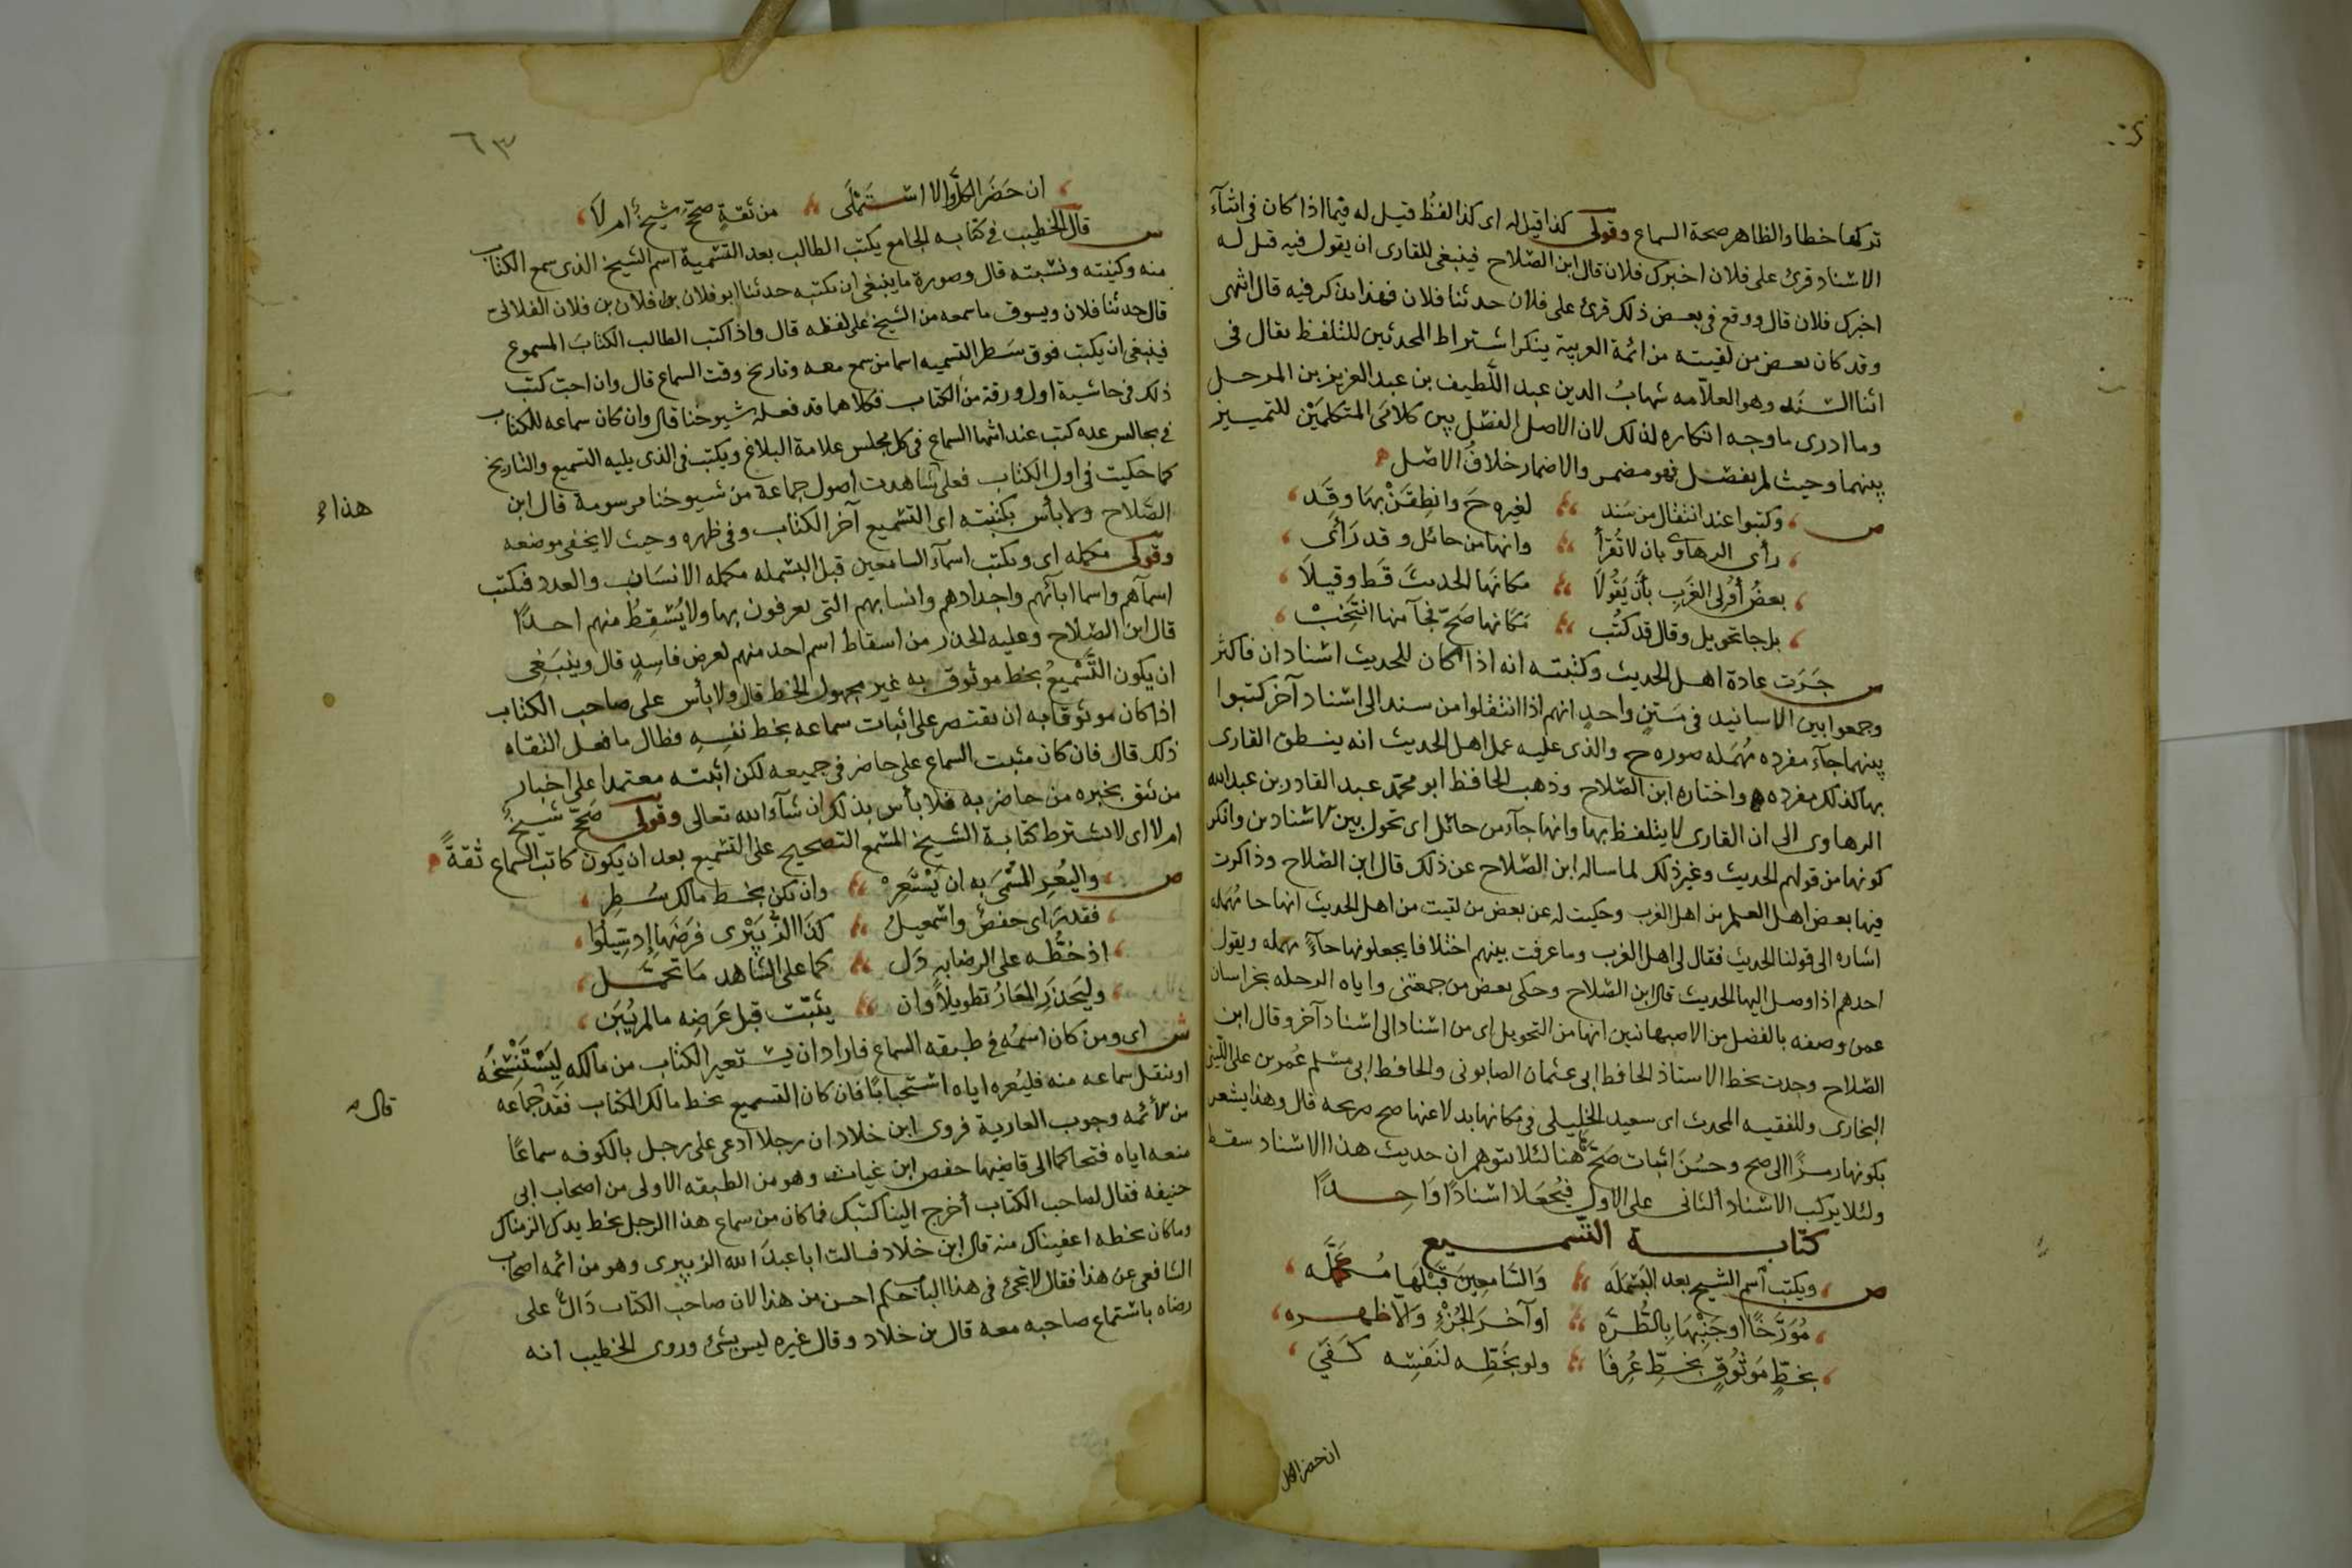 تركها خطا والظاهر صحة السماع وقولى كذا قيل له اى كذا لفظ قيل له فيما اذا كان فى اثنآء
الاسناد قرئ على فلان اخبرك فلان قال ابن الصلاح فينبغى للقارى ان يقول فيه قيل له
اخبرك فلان قال ووقع فى بعض ذلك قرئ على فلان حدثنا فلان فهذا يذكر فيه قال انتهى
وقد كان بعض من لقيته من ائمة العربية ينكر اشتراط المحدثين للتلفظ بقال فى
اثنا السند وهو العلامه شهاب الدين عبد اللطيف بن عبد العزيز بن المرحل
وما ادرى ما وجه انكاره لذلك لان الاصل الفصل بين كلامى المتكلمين للتمييز
بينهما وحيث لم يفصل فهو مضمر والاضمار خلاف الاصل
ص وكتبوا عند انتقال من سند لغيره ح وانطقن بها وقد
رأى الرهاوى بان لا تقرأ وانها من حائل وقد رأى
بعض أولى الغرب بأن يقولا مكانها الحديث قط وقيلا
بل حا تحويل وقال قد كتب مكانها صح فحآ منها انتخب
س جرت عادة اهل الحديث وكتبته انه اذا كان للحديث اسنادان فاكثر
وجمعوا بين الاسانيد فى متن واحد انهم اذا انتقلوا من سند الى اسناد آخر كتبوا
بينهما حآء مفرده مهمله صوره ح والذى عليه عمل اهل الحديث انه ينطق القارى
بها كذلك مفرده واختاره ابن الصلاح وذهب الحافظ ابو محمد عبد القادر بن عبد الله
الرهاوى الى ان القارى لا يتلفظ بها وانها حآء من حائل اى تحول بين الاسنادين وانكر
كونها من قولهم الحديث وغير ذلك لما ساله ابن الصلاح عن ذلك قال ابن الصلاح وذاكرت
فيها بعض اهل العلم من اهل الغرب وحكيت له عن بعض من لقيت من اهل الحديث انها حا مهمله
اشاره الى قولنا الحديث فقال لى اهل الغرب وما عرفت بينهم اختلافا يجعلونها حآءً مهمله ويقول
احدهم اذا وصل اليها الحديث قال ابن الصلاح وحكى بعض من جمعتنى واياه الرحله بخراسان
عمن وصفه بالفضل من الاصبهانيين انها من التحويل اى من اسناد الى اسناد آخر وقال ابن
الصلاح وجدت بخط الاستاذ الحافظ ابى عثمان الصابونى والحافظ ابى مسلم عمر بن على الليثى
البخارى وللفقيه المحدث ابى سعيد الخليلى فى مكانها بدلا عنها صح صريحه قال وهذا يشعر
بكونها رمزًا الى صح وحسن اثبات صح هنا لئلا يتوهم ان حديث هذا الاسناد سقط
ولئلا يركب الاسناد الثانى على الاول فيجعلا اسنادًا واحدًا
كتابة التسميع
ص ويكتب اسم الشيخ بعد البسمله والسامعين قبلها مكمله
مورخًا او جنبها بالطره او آخر الجزء والا ظهره
بخط موثوق بخط عرفا ولو بخطه لنفسه كفى
ان حضر الكل
٦٣
ان حضر الكل والا استملى من ثقة صحح شيخ ام لا
س قال الخطيب فى كتابه الجامع يكتب الطالب بعد التسمية اسم الشيخ الذى سمع الكتاب
منه وكنيته ونسبته قال وصورة ما ينبغى ان يكتبه حدثنا ابو فلان بن فلان بن فلان الفلانى
قال حدثنا فلان ويسوق ما سمعه من الشيخ على لفظه قال واذا كتب الطالب الكتاب المسموع
فينبغى ان يكتب فوق سطر التسميه اسما من سمع معه وتاريخ وقت السماع قال وان احب كتب
ذلك فى حاشية اول ورقة من الكتاب فكلاهما قد فعله شيوخنا قال وان كان سماعه للكتاب
فى مجالس عده كتب عند انتها السماع فى كل مجلس علامة البلاغ ويكتب فى الذى يليه التسميع والتاريخ
كما حكيت فى اول الكتاب فعلى شاهدت اصول جماعة من شيوخنا مرسومة قال ابن
هذا
الصلاح ولا بأس بكتبته اى التسميع آخر الكتاب وفى ظهره وحيث لا يخفى موضعه
وقولى مكمله اى ويكتب اسمآء السامعين قبل البسمله مكمله الانساب والعدد فيكتب
اسمآهم واسما ابآئهم واجدادهم وانسابهم التى يعرفون بها ولا يسقط منهم احدًا
قال ابن الصلاح وعليه الحذر من اسقاط اسم احد منهم لغرض فاسد قال وينبغى
ان يكون التسميع بخط موثوق به غير مجهول الخط قال ولا بأس على صاحب الكتاب
اذا كان موثوقا به ان يقتصر على اثبات سماعه بخط نفسه فطال ما فعل الثقاه
ذلك قال فان كان مثبت السماع على حاضر فى جميعه لكن اثبته معتمدا على اخبار
من يثق بخبره من حاضر به فلا بأس بذلك ان شآء الله تعالى وقولى صحح شيخ
ام لا اى لا يشترط كتابة الشيخ المسمع التصحيح على التسميع بعد ان يكون كاتب السماع ثقةً
ص واليعر المسمى به ان يستعر وان يكن بخط مالك سطر
فقد رأى حفص واسمعيل كذا الزبيرى فرضها إذ سيلوا
اذ خطه على الرضا به دل كما على الشاهد ما تحمل
وليحذر المعار تطويلاً وان يثبت قبل عرضه ما لم يبن
ش اى ومن كان اسمه فى طبقه السماع فاراد ان يستعير الكتاب من مالكه ليستنسخه
او ينقل سماعه منه فليعره اياه استحبابًا فان كان التسميع بخط مالك الكتاب فقد جماعه
قال
من الأئمه وجوب العارية فروى ابن خلاد ان رجلا ادعى على رجل بالكوفه سماعًا
منعه اياه فتحاكما الى قاضيها حفص ابن غياث وهو من الطبقه الاولى من اصحاب ابى
حنيفه فقال لصاحب الكتاب أخرج الينا كتبك فما كان من سماع هذا الرجل بخط يدك الزمناك
وما كان بخطه اعفيناك منه قال ابن خلاد فسالت ابا عبد الله الزبيرى وهو من ائمه اصحاب
الشافعى عن هذا فقال لا يجئ فى هذا الباب حكم احسن من هذا لان صاحب الكتاب دال على
رضاه باستماع صاحبه معه قال بن خلاد وقال غيره ليس بشئ وروى الخطيب انه